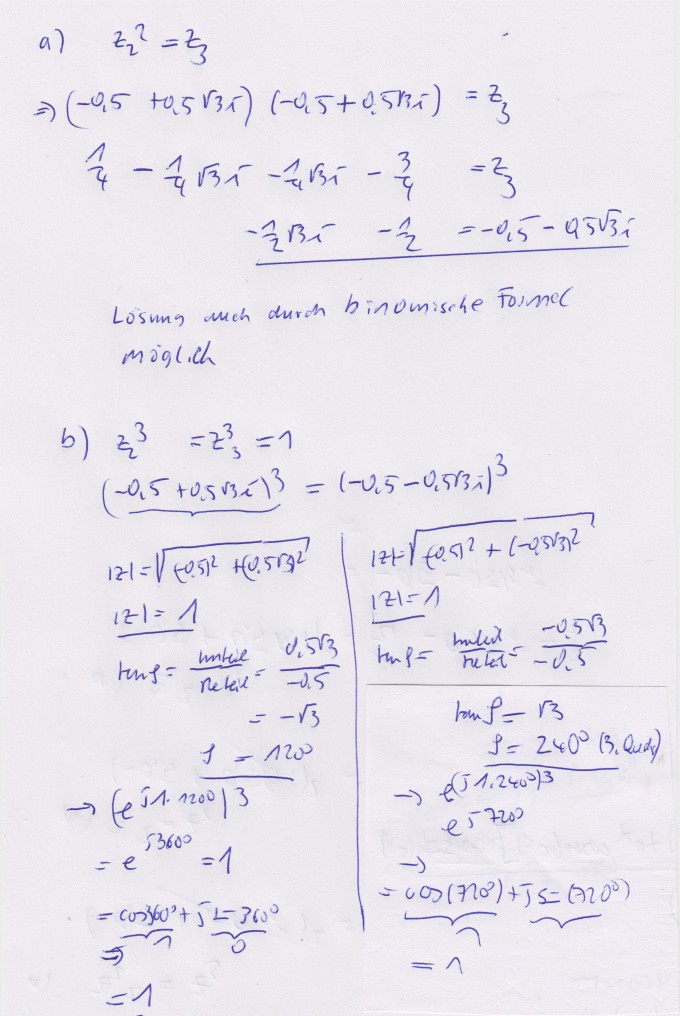 a) z₂² = z₃
⇒ (-0,5 + 0,5√3i) (-0,5 + 0,5√3i) = z₃
1/4 - 1/4√3i - 1/4√3i - 3/4 = z₃
-1/2√3i - 1/2 = -0,5 - 0,5√3i
Lösung auch durch binomische Formel
möglich
b) z₂³ = z₃³ = 1
(-0,5 + 0,5√3i)³ = (-0,5 - 0,5√3i)³
|z| = √((-0,5)² + (0,5√3)²)
|z| = 1
tan φ = Imteil/Reteil = 0,5√3/-0,5
= -√3
φ = 120°
→ (e^j1·120°)³
= e^j360° = 1
= cos360° + j 360°
⇒ 1 0
= 1
|z| = √((-0,5)² + (-0,5√3)²)
|z| = 1
tan φ = Imteil/Reteil = -0,5√3/-0,5
tan φ = √3
φ = 240° (3. Quadr)
→ e^(j1·240°)3
e^j720°
→
= cos(720°) + j (720°)
= 1